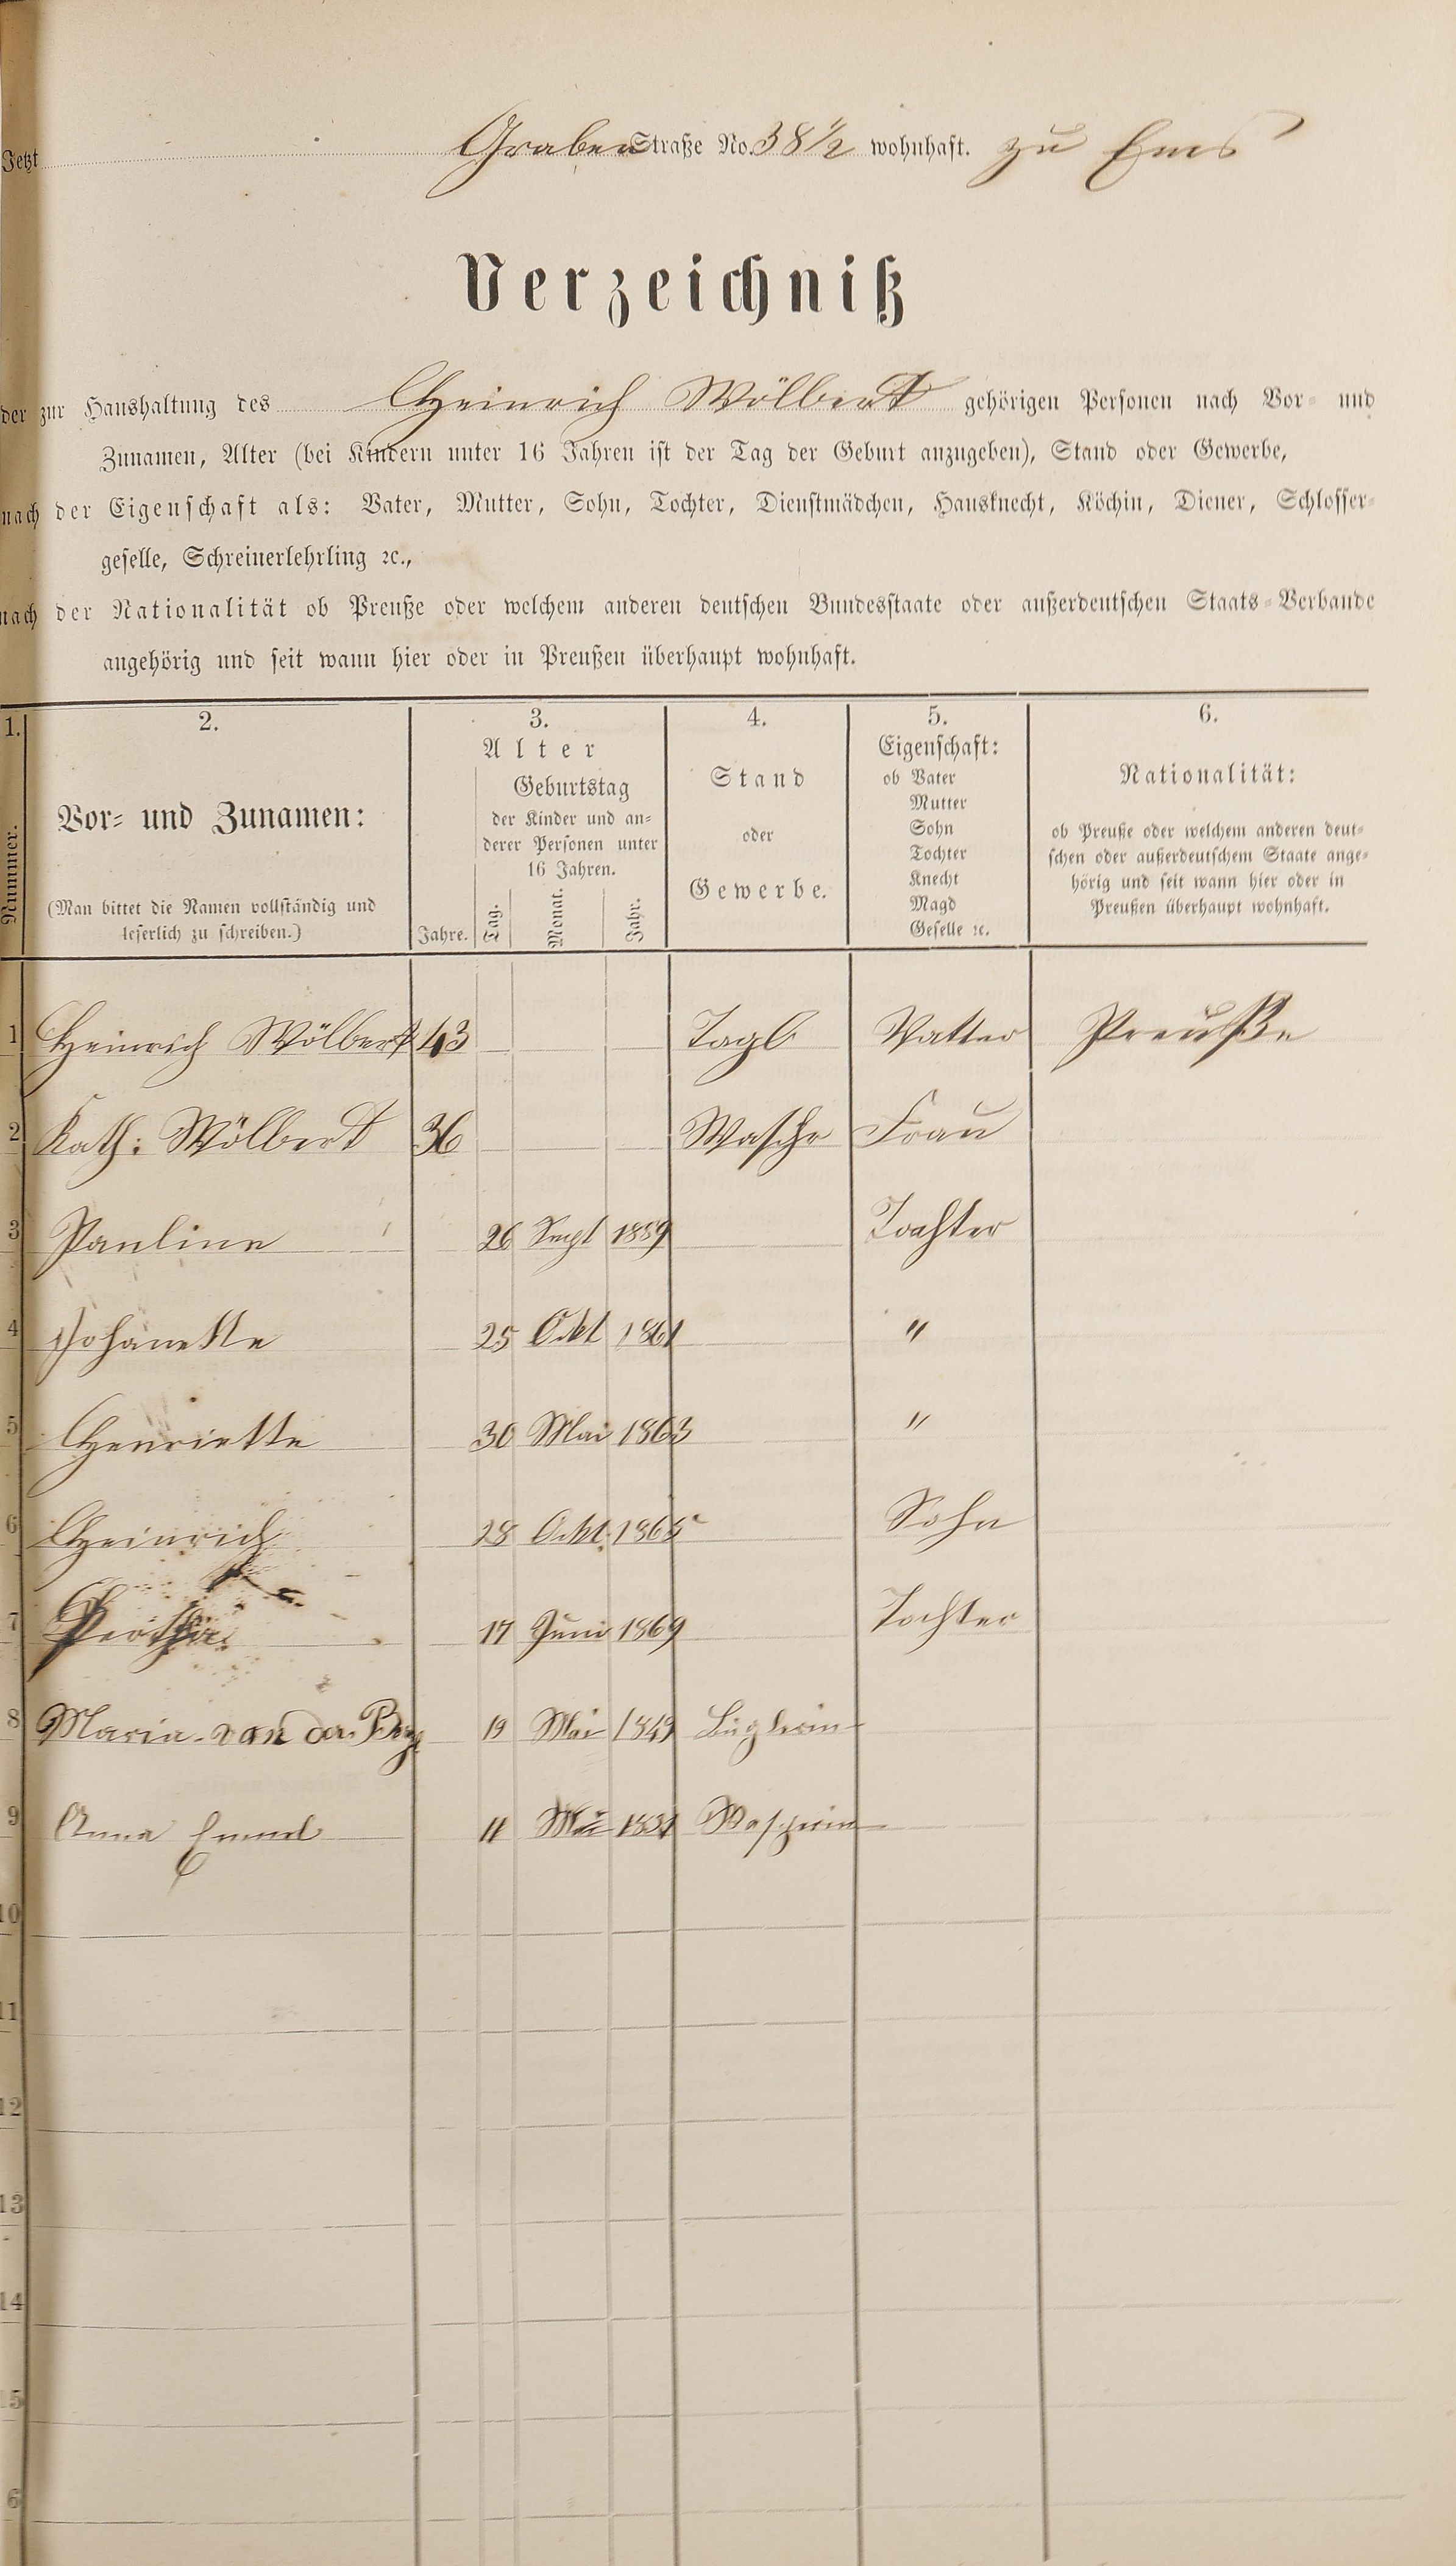 Jetzt Graben Straße No. 38 1/2 wohnhaft. zu Ems
Verzeichniß
der zur Haushaltung des Heinrich Wölbert gehörigen Personen nach Vor- und
Zunamen, Alter (bei Kindern unter 16 Jahren ist der Tag der Geburt anzugeben), Stand oder Gewerbe,
nach der Eigenschaft als: Vater, Mutter, Sohn, Tochter, Dienstmädchen, Hausknecht, Köchin, Diener, Schlosser-
geselle, Schreinerlehrling ꝛc.,
nach der Nationalität ob Preuße oder welchem anderen deutschen Bundesstaate oder außerdeutschen Staats-Verbande
angehörig und seit wann hier oder in Preußen überhaupt wohnhaft.
1. 2. 3. 4. 5. 6.
Nummer.
Vor- und Zunamen:
(Man bittet die Namen vollständig und
leserlich zu schreiben.)
Alter
Jahre.
Geburtstag
der Kinder und an-
derer Personen unter
16 Jahren.
Tag. Monat. Jahr.
Stand
oder
Gewerbe.
Eigenschaft:
ob Vater
Mutter
Sohn
Tochter
Knecht
Magd
Geselle ꝛc.
Nationalität:
ob Preuße oder welchem anderen deut-
schen oder außerdeutschem Staate ange-
hörig und seit wann hier oder in
Preußen überhaupt wohnhaft.
1 Heinrich Wölbert 43 Tagl Vatter Preuße
2 Kath: Wölbert 36 Waschr Frau
3 Pauline 26 Sept 1859 Tochter
4 Johanette 25 Okt 1861 "
5 Henriette 30 Mai 1863 "
6 Heinrich 28 Okt. 1865 Sohn
7 17 Juni 1869 Tochter
8 Maria van der 19 Mai 1849 Büglerin
9 Anna Emmel 11 Mai 1831 Wascherin
10
11
12
13
14
15
6